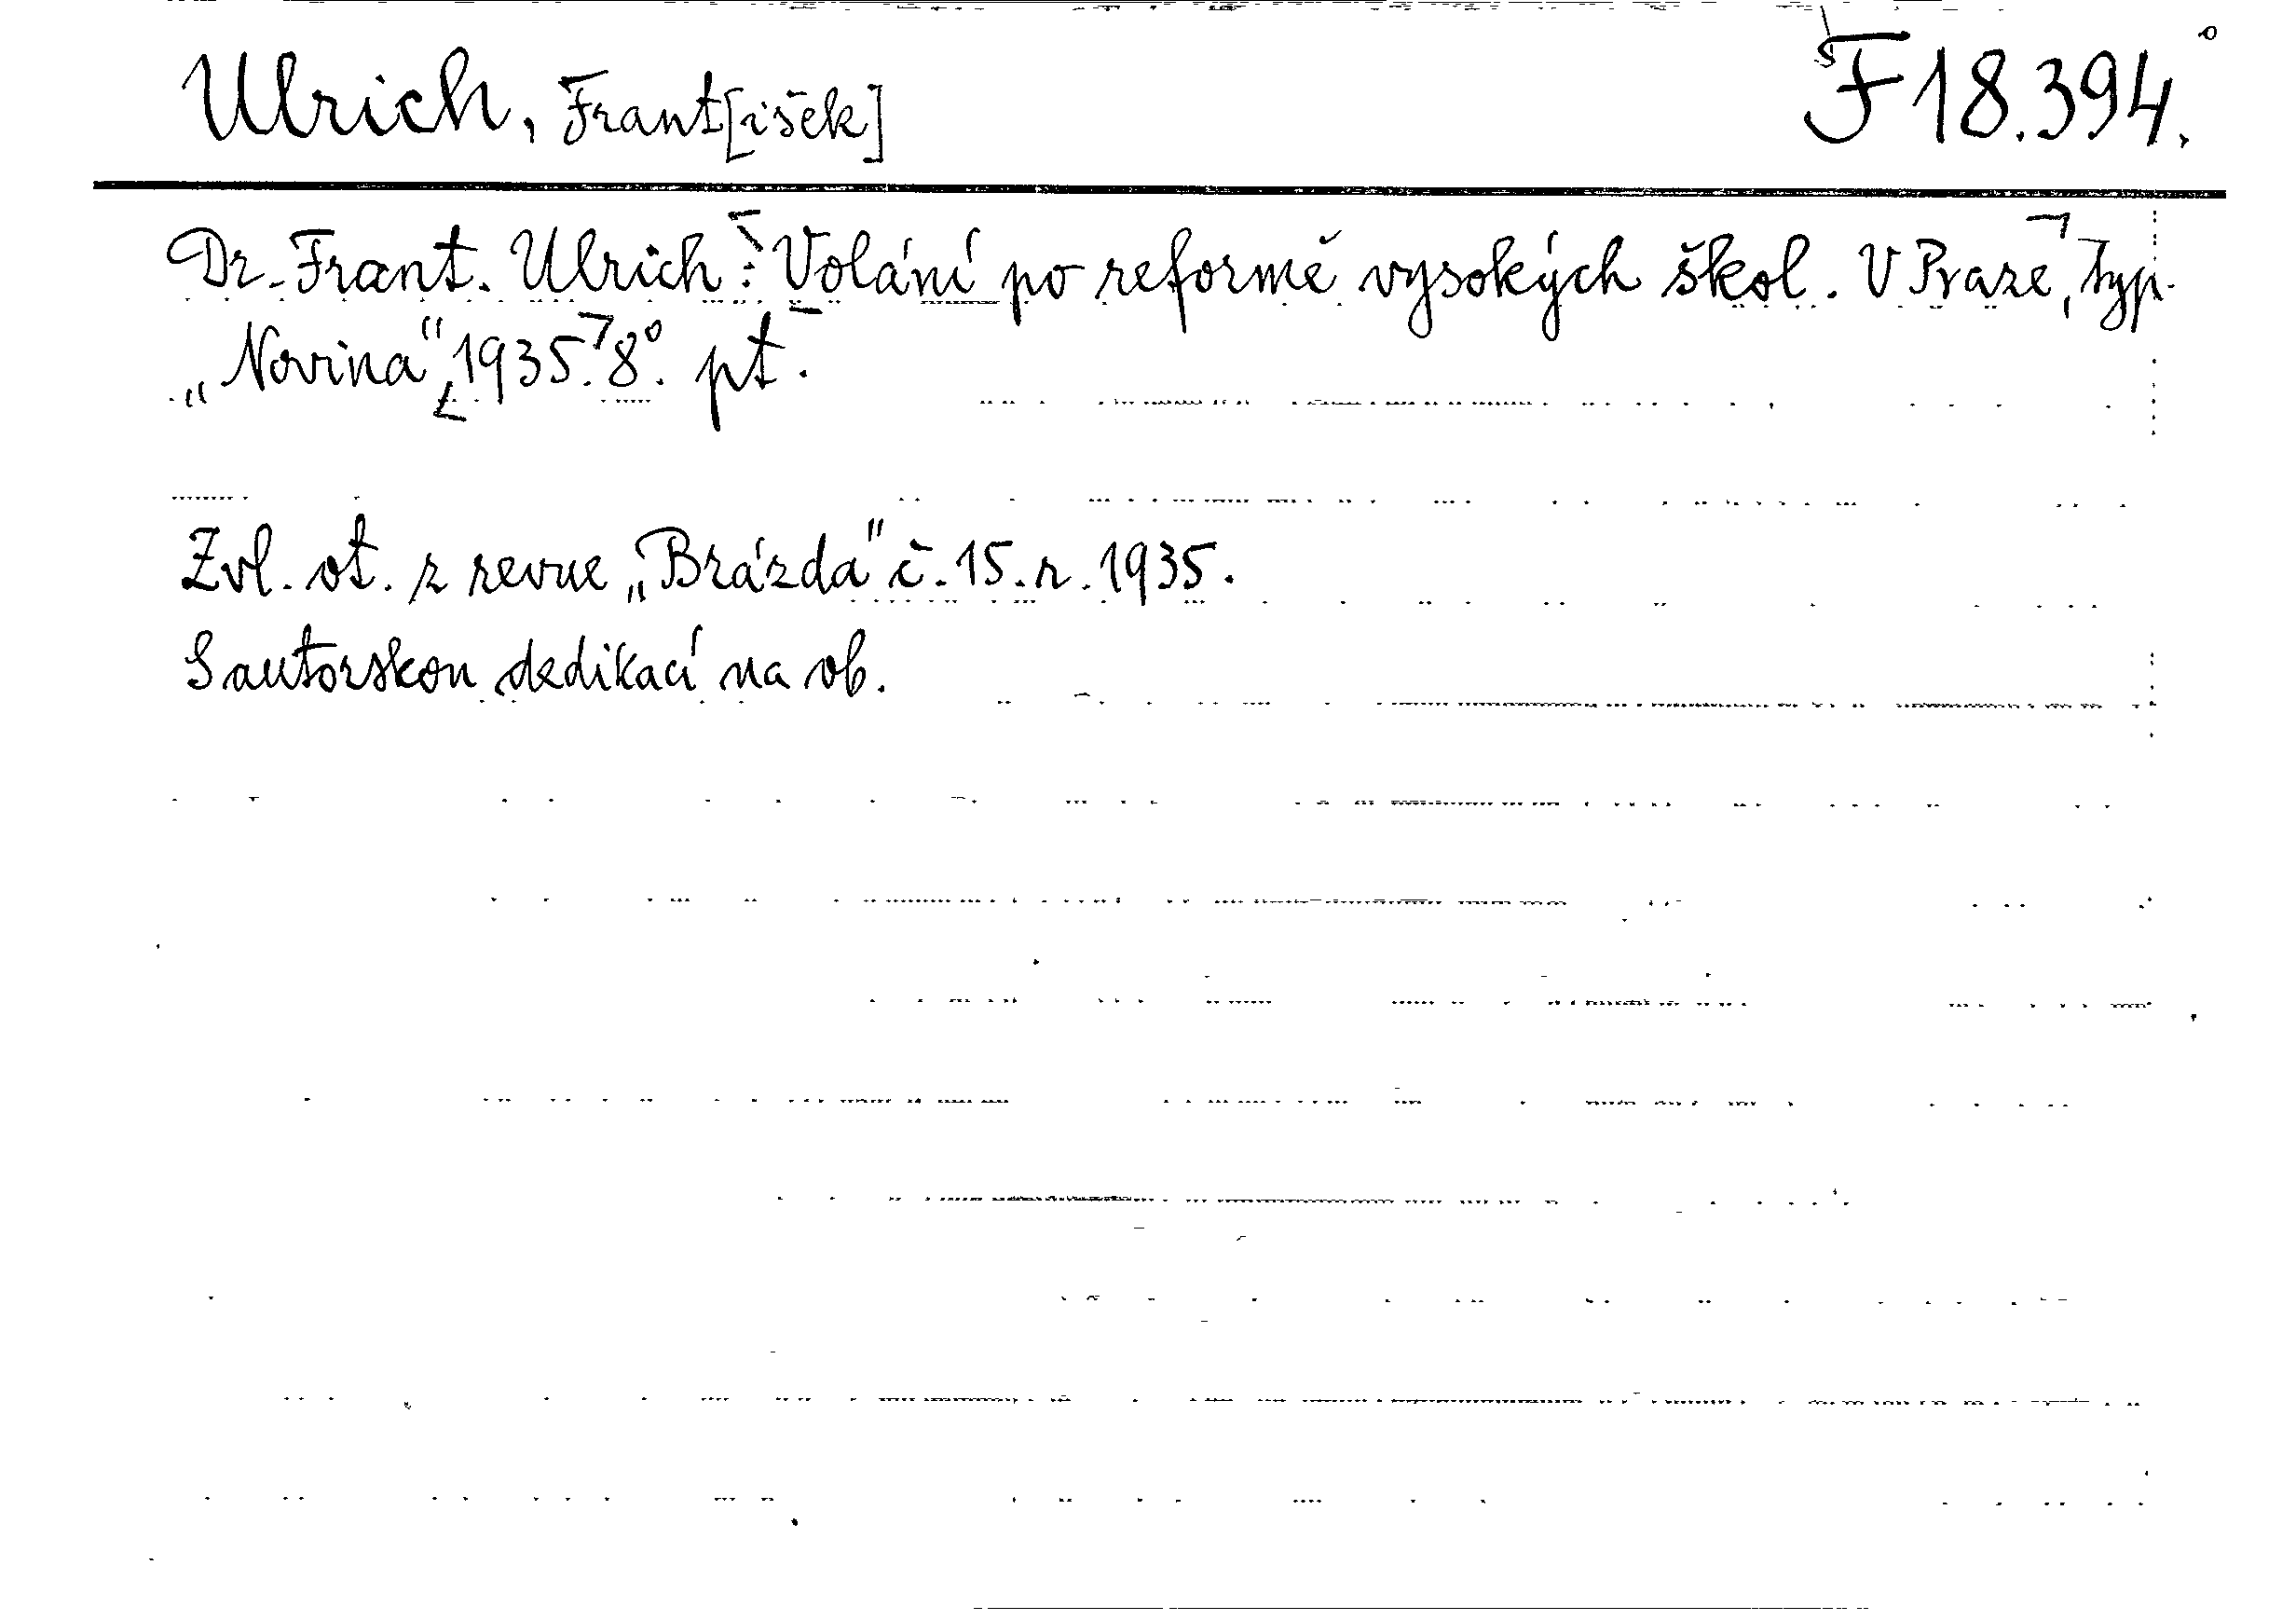 Ulrich, Frant[išek] F 18.394.
Dr. Frant. Ulrich: Volání po reformě vysokých škol. V Praze, Typ.
„Novina", 1935. 8°. pt.
Zvl. ot. z revue „Brázda" č. 15. r. 1935.
S autorskou dedikací na ob.